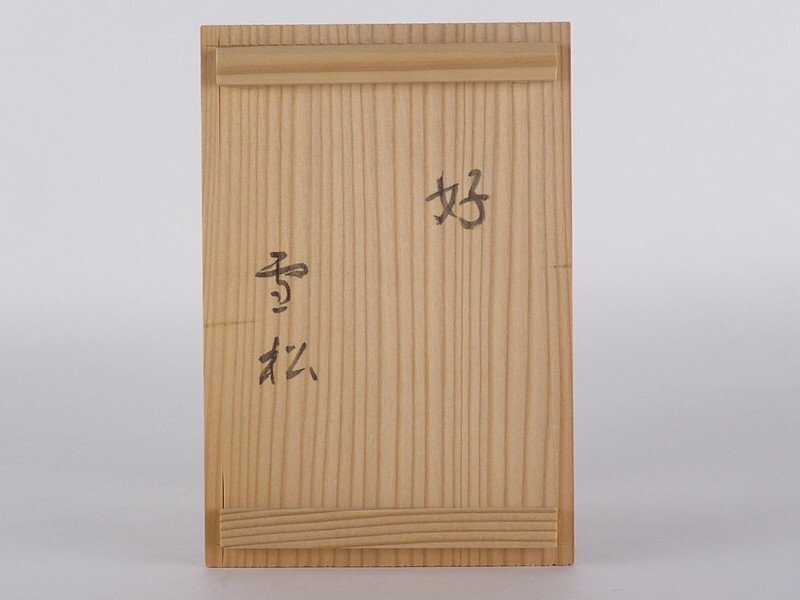 好
雪松